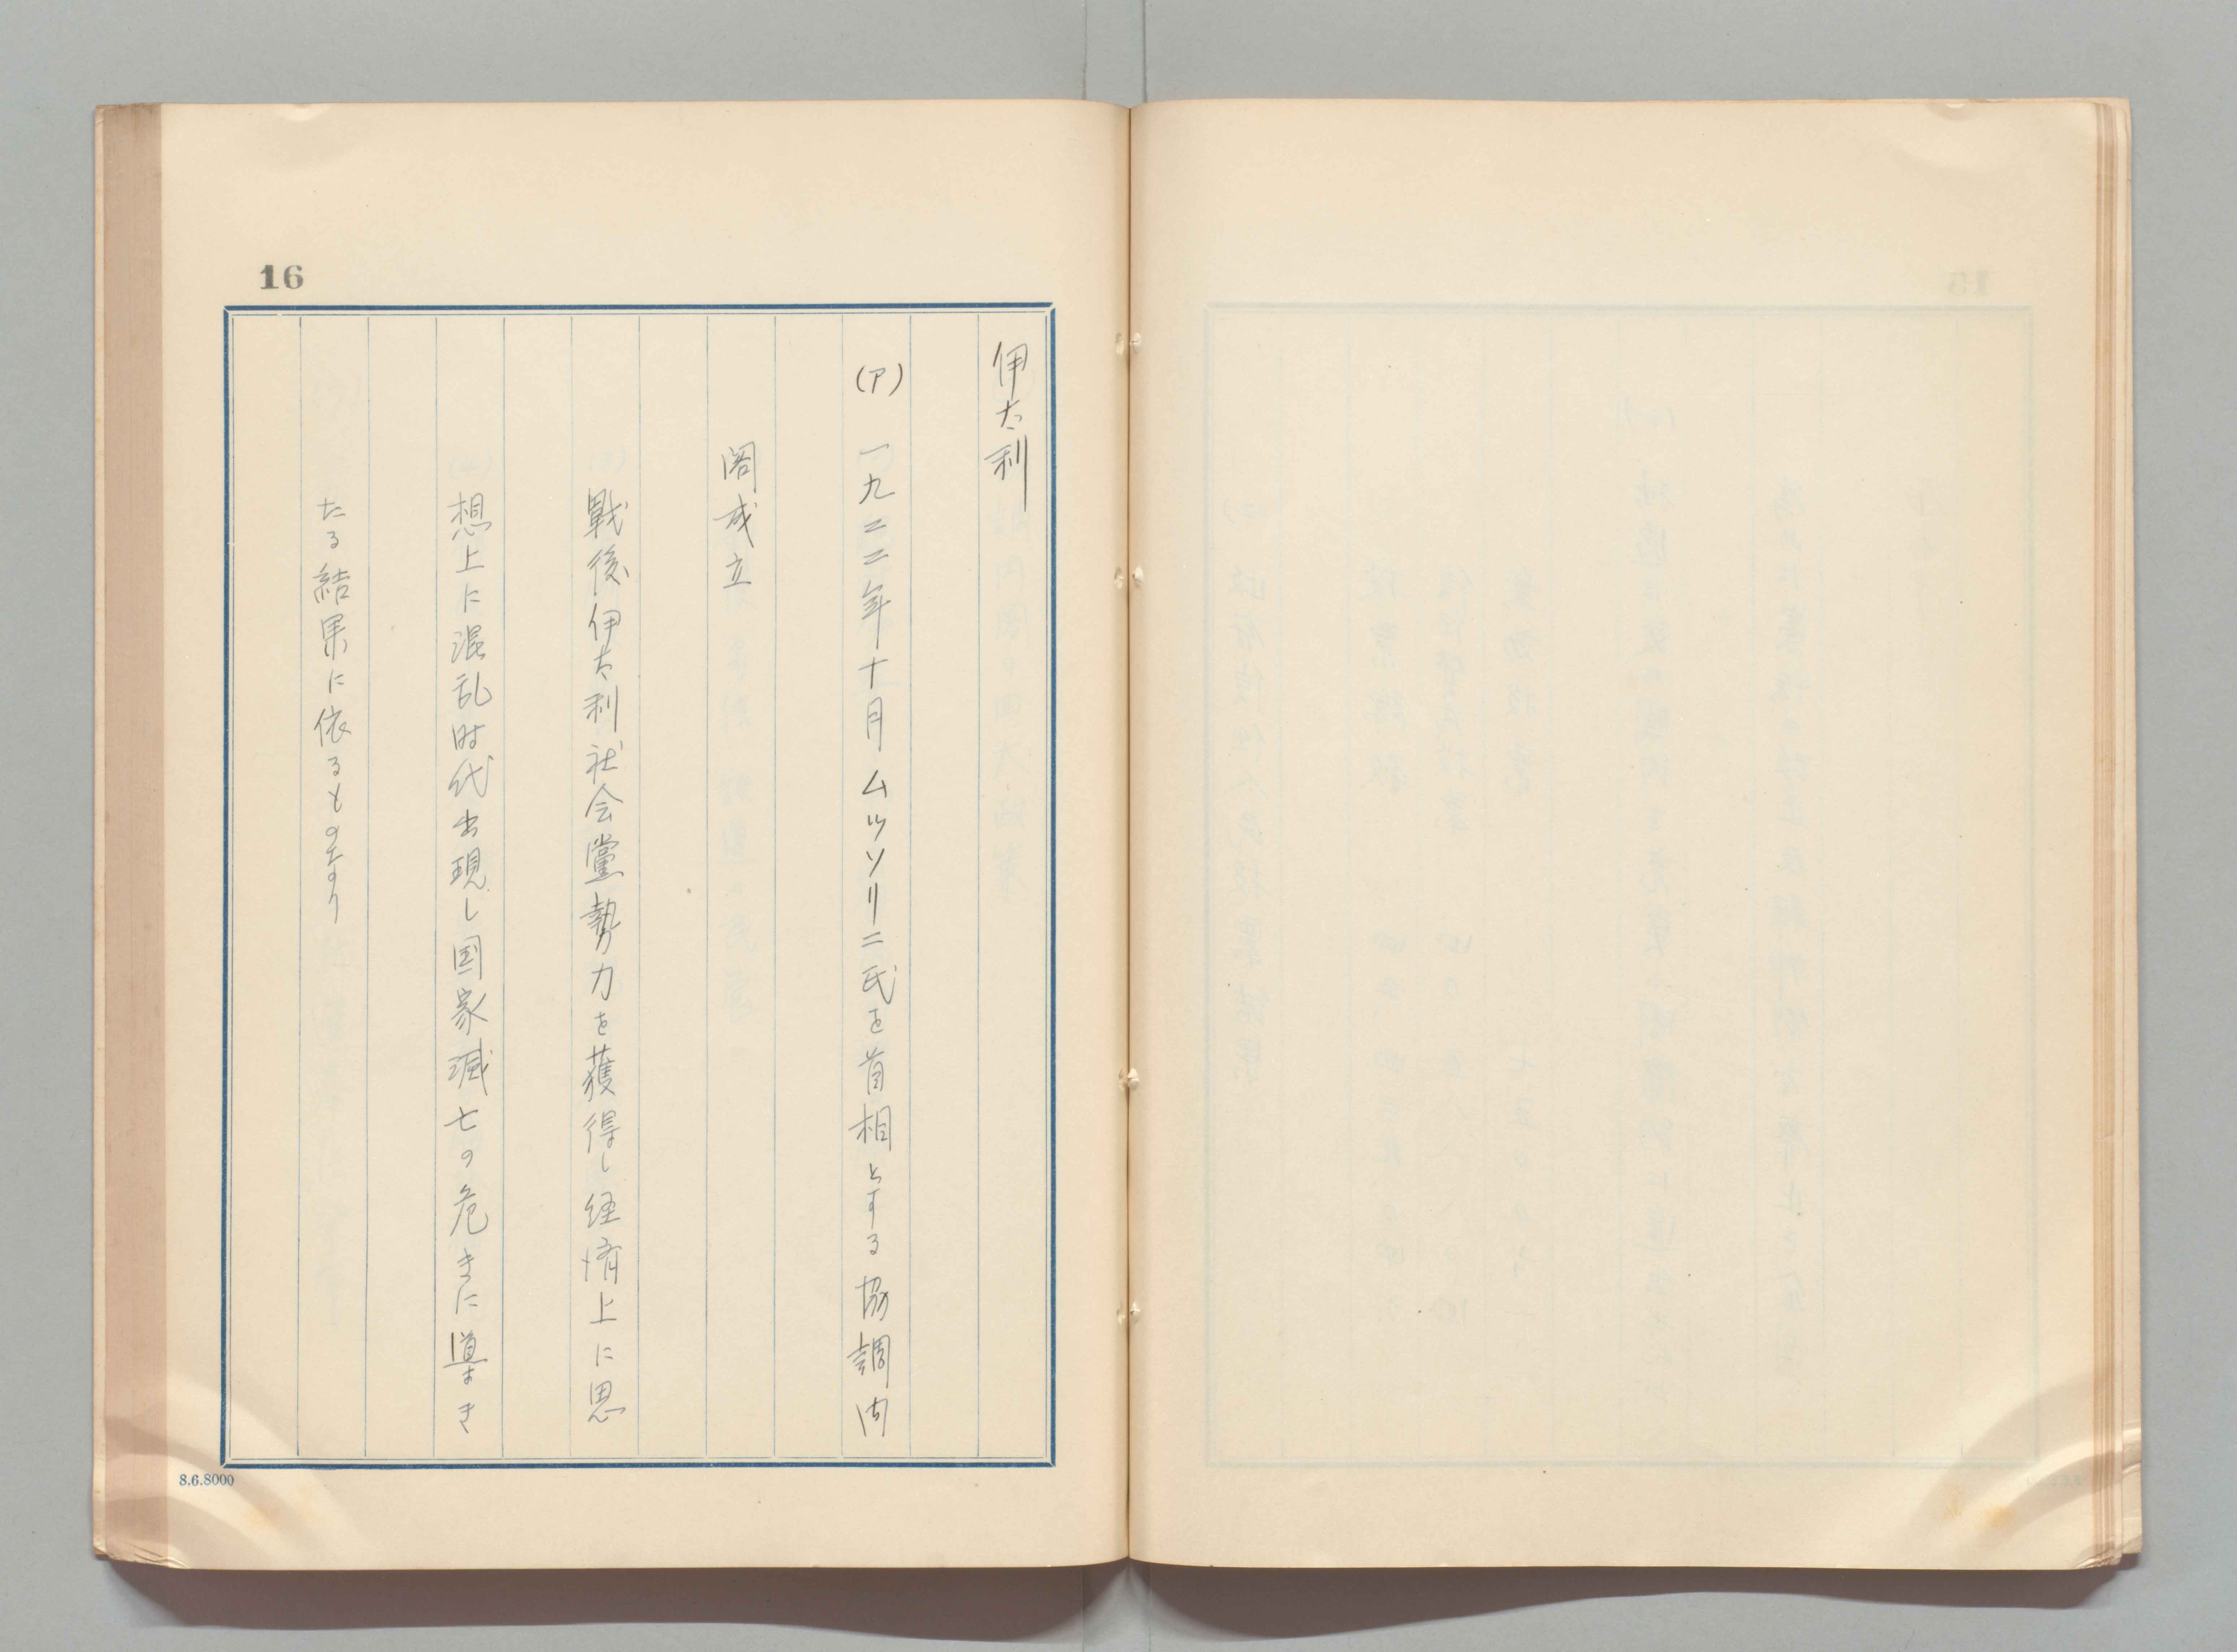 16
伊太利
(ア) 一九二二年十月ムッソリーニ氏を首相とする協調内
閣成立
戰後伊太利社会黨勢力を獲得し経済上に思
想上に混乱时代出現し国家滅亡の危きに導き
たる結果に依るものなり
8.6.8000